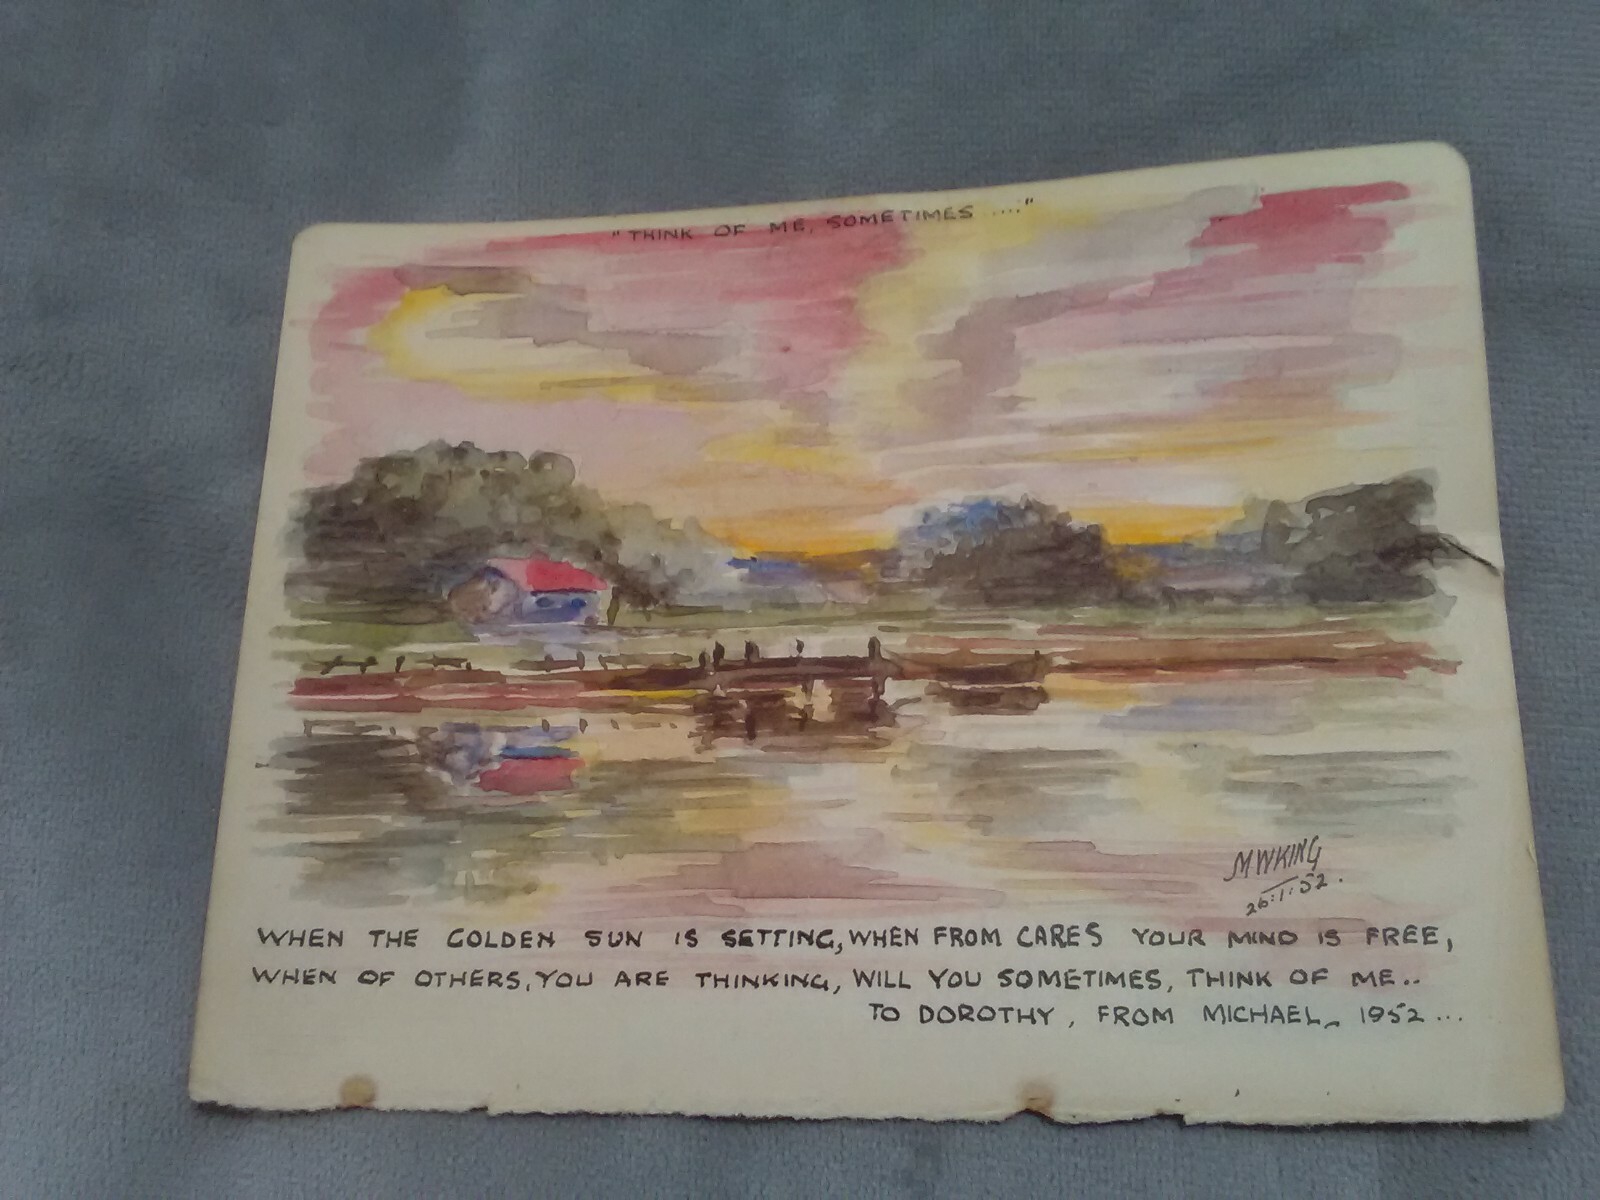 "THINK OF ME, SOMETIMES ....."
M W KING
26:1:52.
WHEN THE GOLDEN SUN IS SETTING, WHEN FROM CARES YOUR MIND IS FREE,
WHEN OF OTHERS, YOU ARE THINKING, WILL YOU SOMETIMES, THINK OF ME..
TO DOROTHY, FROM MICHAEL_ 1952...